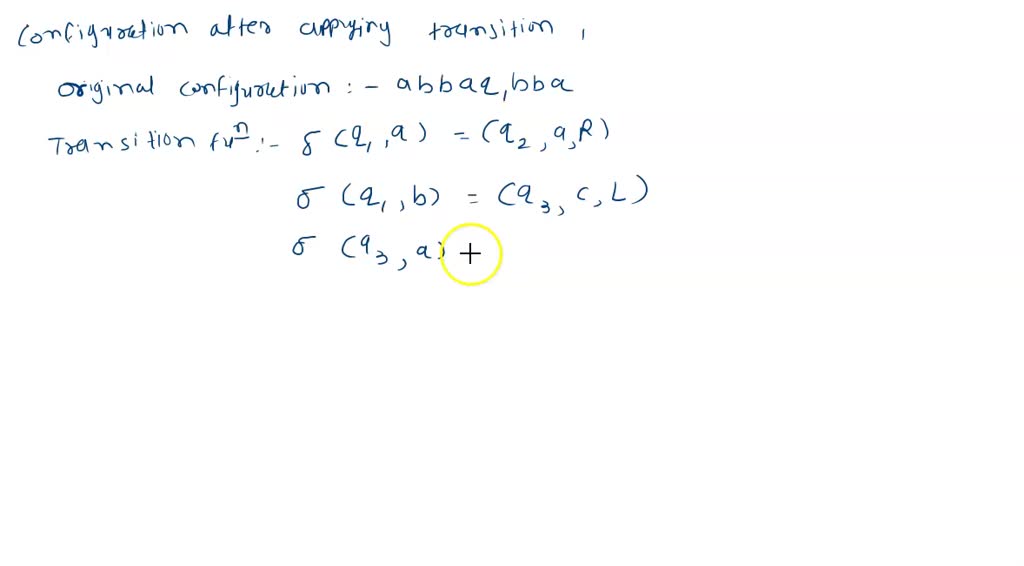 Configuration after applying transition,
original configuration :- abbaq₁bba
Transition fuⁿ :- δ (q₁, a) = (q₂, a, R)
δ (q₁, b) = (q₃, c, L)
δ (q₃, a)